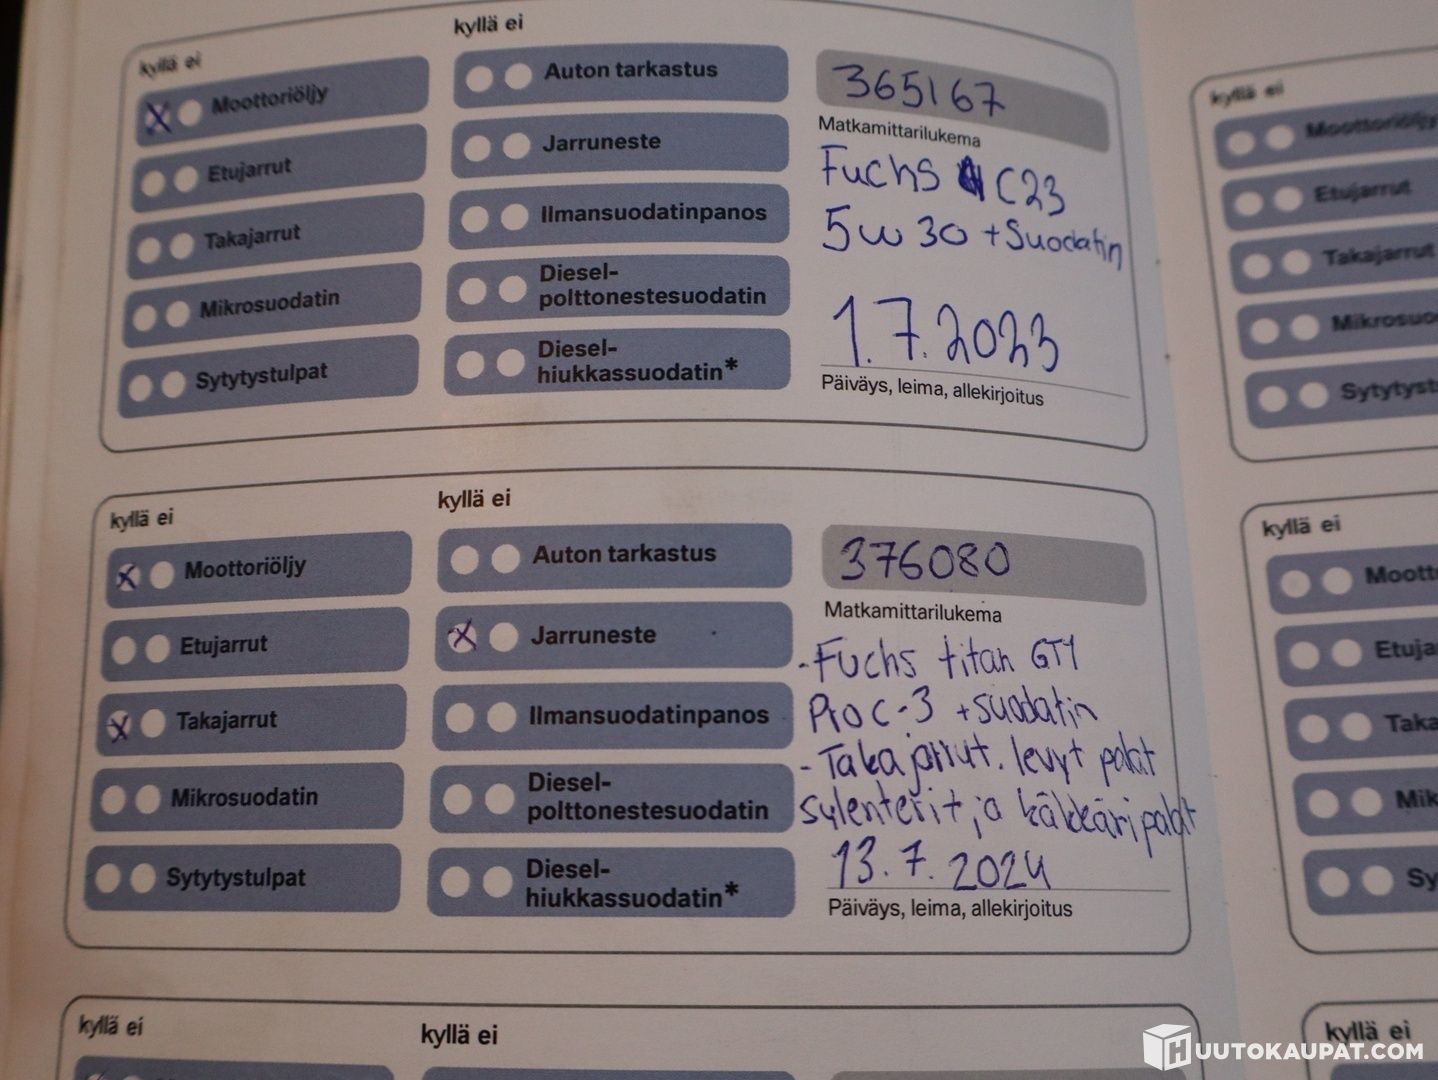 kyllä ei
kyllä ei
X Moottoriöljy
Etujarrut
Takajarrut
Mikrosuodatin
Sytytystulpat
Auton tarkastus
Jarruneste
Ilmansuodatinpanos
Diesel-
polttonestesuodatin
Diesel-
hiukkassuodatin*
365167
Matkamittarilukema
Fuchs C23
5w30 + Suodatin
1.7.2023
Päiväys, leima, allekirjoitus
kyllä ei
kyllä ei
X Moottoriöljy
Etujarrut
X Takajarrut
Mikrosuodatin
Sytytystulpat
Auton tarkastus
X Jarruneste
Ilmansuodatinpanos
Diesel-
polttonestesuodatin
Diesel-
hiukkassuodatin*
376080
Matkamittarilukema
- Fuchs titan GT1
Pro C-3 + suodatin
- Takajarrut. levyt palat
sylenterit ja käkkäripalat
13.7.2024
Päiväys, leima, allekirjoitus
kyllä ei
kyllä ei
kyllä ei
Moottoriöljy
Etujarrut
Takajarrut
Mikrosuo
Sytytyst
kyllä ei
Mootto
Etuja
Taka
Mik
Sy
kyllä ei
HUUTOKAUPAT.COM